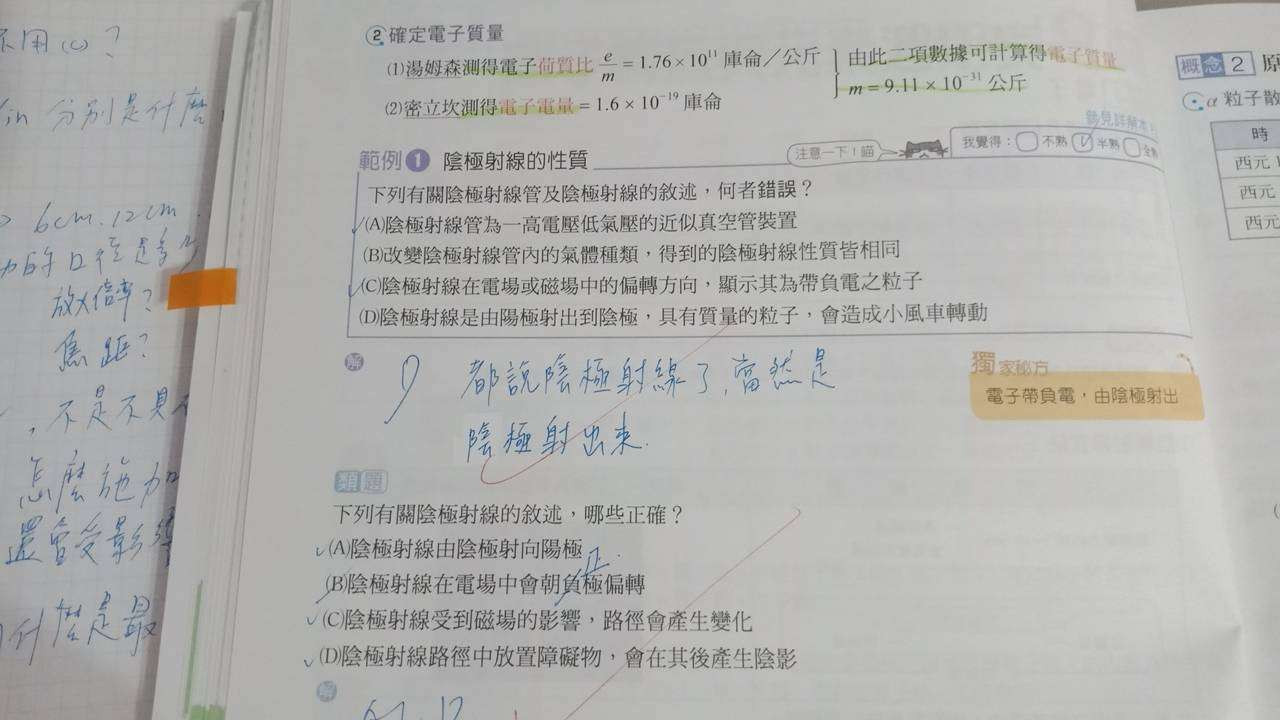 不用(c)?
in 分別是什麼
6cm.12cm.
的口徑是多少
放大倍率?
焦距?
,不是不具
怎麼施加
還會受影響
什麼是最
②確定電子質量
⑴湯姆森測得電子荷質比 e/m = 1.76 × 10¹¹ 庫侖/公斤
⑵密立坎測得電子電量 = 1.6 × 10⁻¹⁹ 庫侖
由此二項數據可計算得電子質量
m = 9.11 × 10⁻³¹ 公斤
範例1 陰極射線的性質
注意一下!喵
我覺得:不熟 半熟 全熟
下列有關陰極射線管及陰極射線的敘述,何者錯誤?
(A)陰極射線管為一高電壓低氣壓的近似真空管裝置
(B)改變陰極射線管內的氣體種類,得到的陰極射線性質皆相同
(C)陰極射線在電場或磁場中的偏轉方向,顯示其為帶負電之粒子
(D)陰極射線是由陽極射出到陰極,具有質量的粒子,會造成小風車轉動
解
都說陰極射線了,當然是
陰極射出來.
獨家秘方
電子帶負電,由陰極射出
類題
下列有關陰極射線的敘述,哪些正確?
(A)陰極射線由陰極射向陽極
正.
(B)陰極射線在電場中會朝負極偏轉
(C)陰極射線受到磁場的影響,路徑會產生變化
(D)陰極射線路徑中放置障礙物,會在其後產生陰影
解
概念2 原
α粒子散
時
西元1
西元
西元